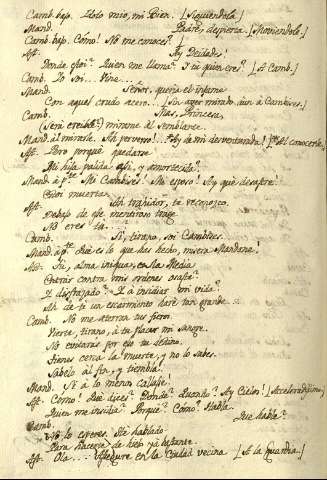 Camb. bajo. Idolo mio, mi Bien. [Siguiendola.]
Mand. Padre, despierta. [Moviendole.]
Camb. bajo. Cómo! No me conoces?
Ast. Ay Deidades!
Donde estoi? Quien me llama? I tu quien eres? [A Camb.]
Camb. Io soi... Vine...
Mand. Señor, queria el infame
Con aquel crudo acero... [Sin aver mirado aún à Cambises.]
Camb. Mas, Princesa,
(Será creible?) mirame al semblante.
Mand. à mirarle. Ah perverso! ... Ay de mi desventurada! [Al conocerle.]
Ast. Pero porqué quedarse
Mi hija palida assi, y amortecida?
Mand. à pte. Mi Cambises! Mi esposo! Ay qué desastre!
Estoi muerta.
Ast. Ah trahidor, te reconozco.
Debajo de esse mentiroso trage
No eres tu...?
Camb. Si, tirano, soi Cambises.
Mand. à pte. Qué es lo que has hecho, misera Mandane!
Ast. Tu, alma iniqua, en la Media
Entrar contra mis ordenes osaste?
I disfrazado? I à insidiar mi vida?
Ah de ti un escarmiento haré tan grande...
Camb. No me aterran tus fieros.
Vierte, tirano, à tu placer mi sangre.
No evitarás por eso tu destino.
Tienes cerca la muerte, y no lo sabes.
Sabelo al fin, y tiembla.
Mand. Si à lo menos callasse!
Ast. Cómo! Qué dices? Donde? Quando? Ay Cielos! [Aceleradissimo.]
Quien me insidia? Porqué? Cómo? Habla.
Camb. Que hable?
No lo esperes. He hablado
Para hacerte de hielo ya bastante.
Ast. Ola... en la Ciudad vecina [A la Guardia.]